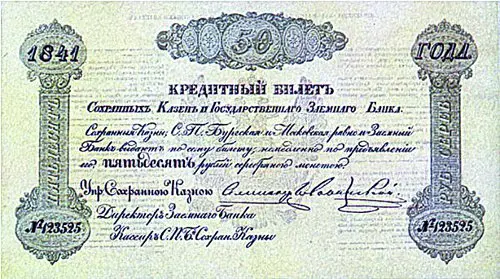 50
1841 ГОДА
КРЕДИТНЫЙ БИЛЕТЪ
СОХРАННЫХЪ КАЗЕНЪ И ГОСУДАРСТВЕННАГО ЗАЕМНАГО БАНКА.
Сохранныя Казны, С. П. Бургская и Московская равно и Заемный
Банкъ выдаютъ по сему билету, немедленно по предъявленіи
его ПЯТЬДЕСЯТЪ рублей серебряною монетою.
Упр. Сохранною Казною
Директоръ Заемнаго Банка
Кассиръ С. П. Б. Сохран. Казны
ПЯТЬДЕСЯТЪ
РУБ. СЕРЕБР.
№ 123525 № 123525